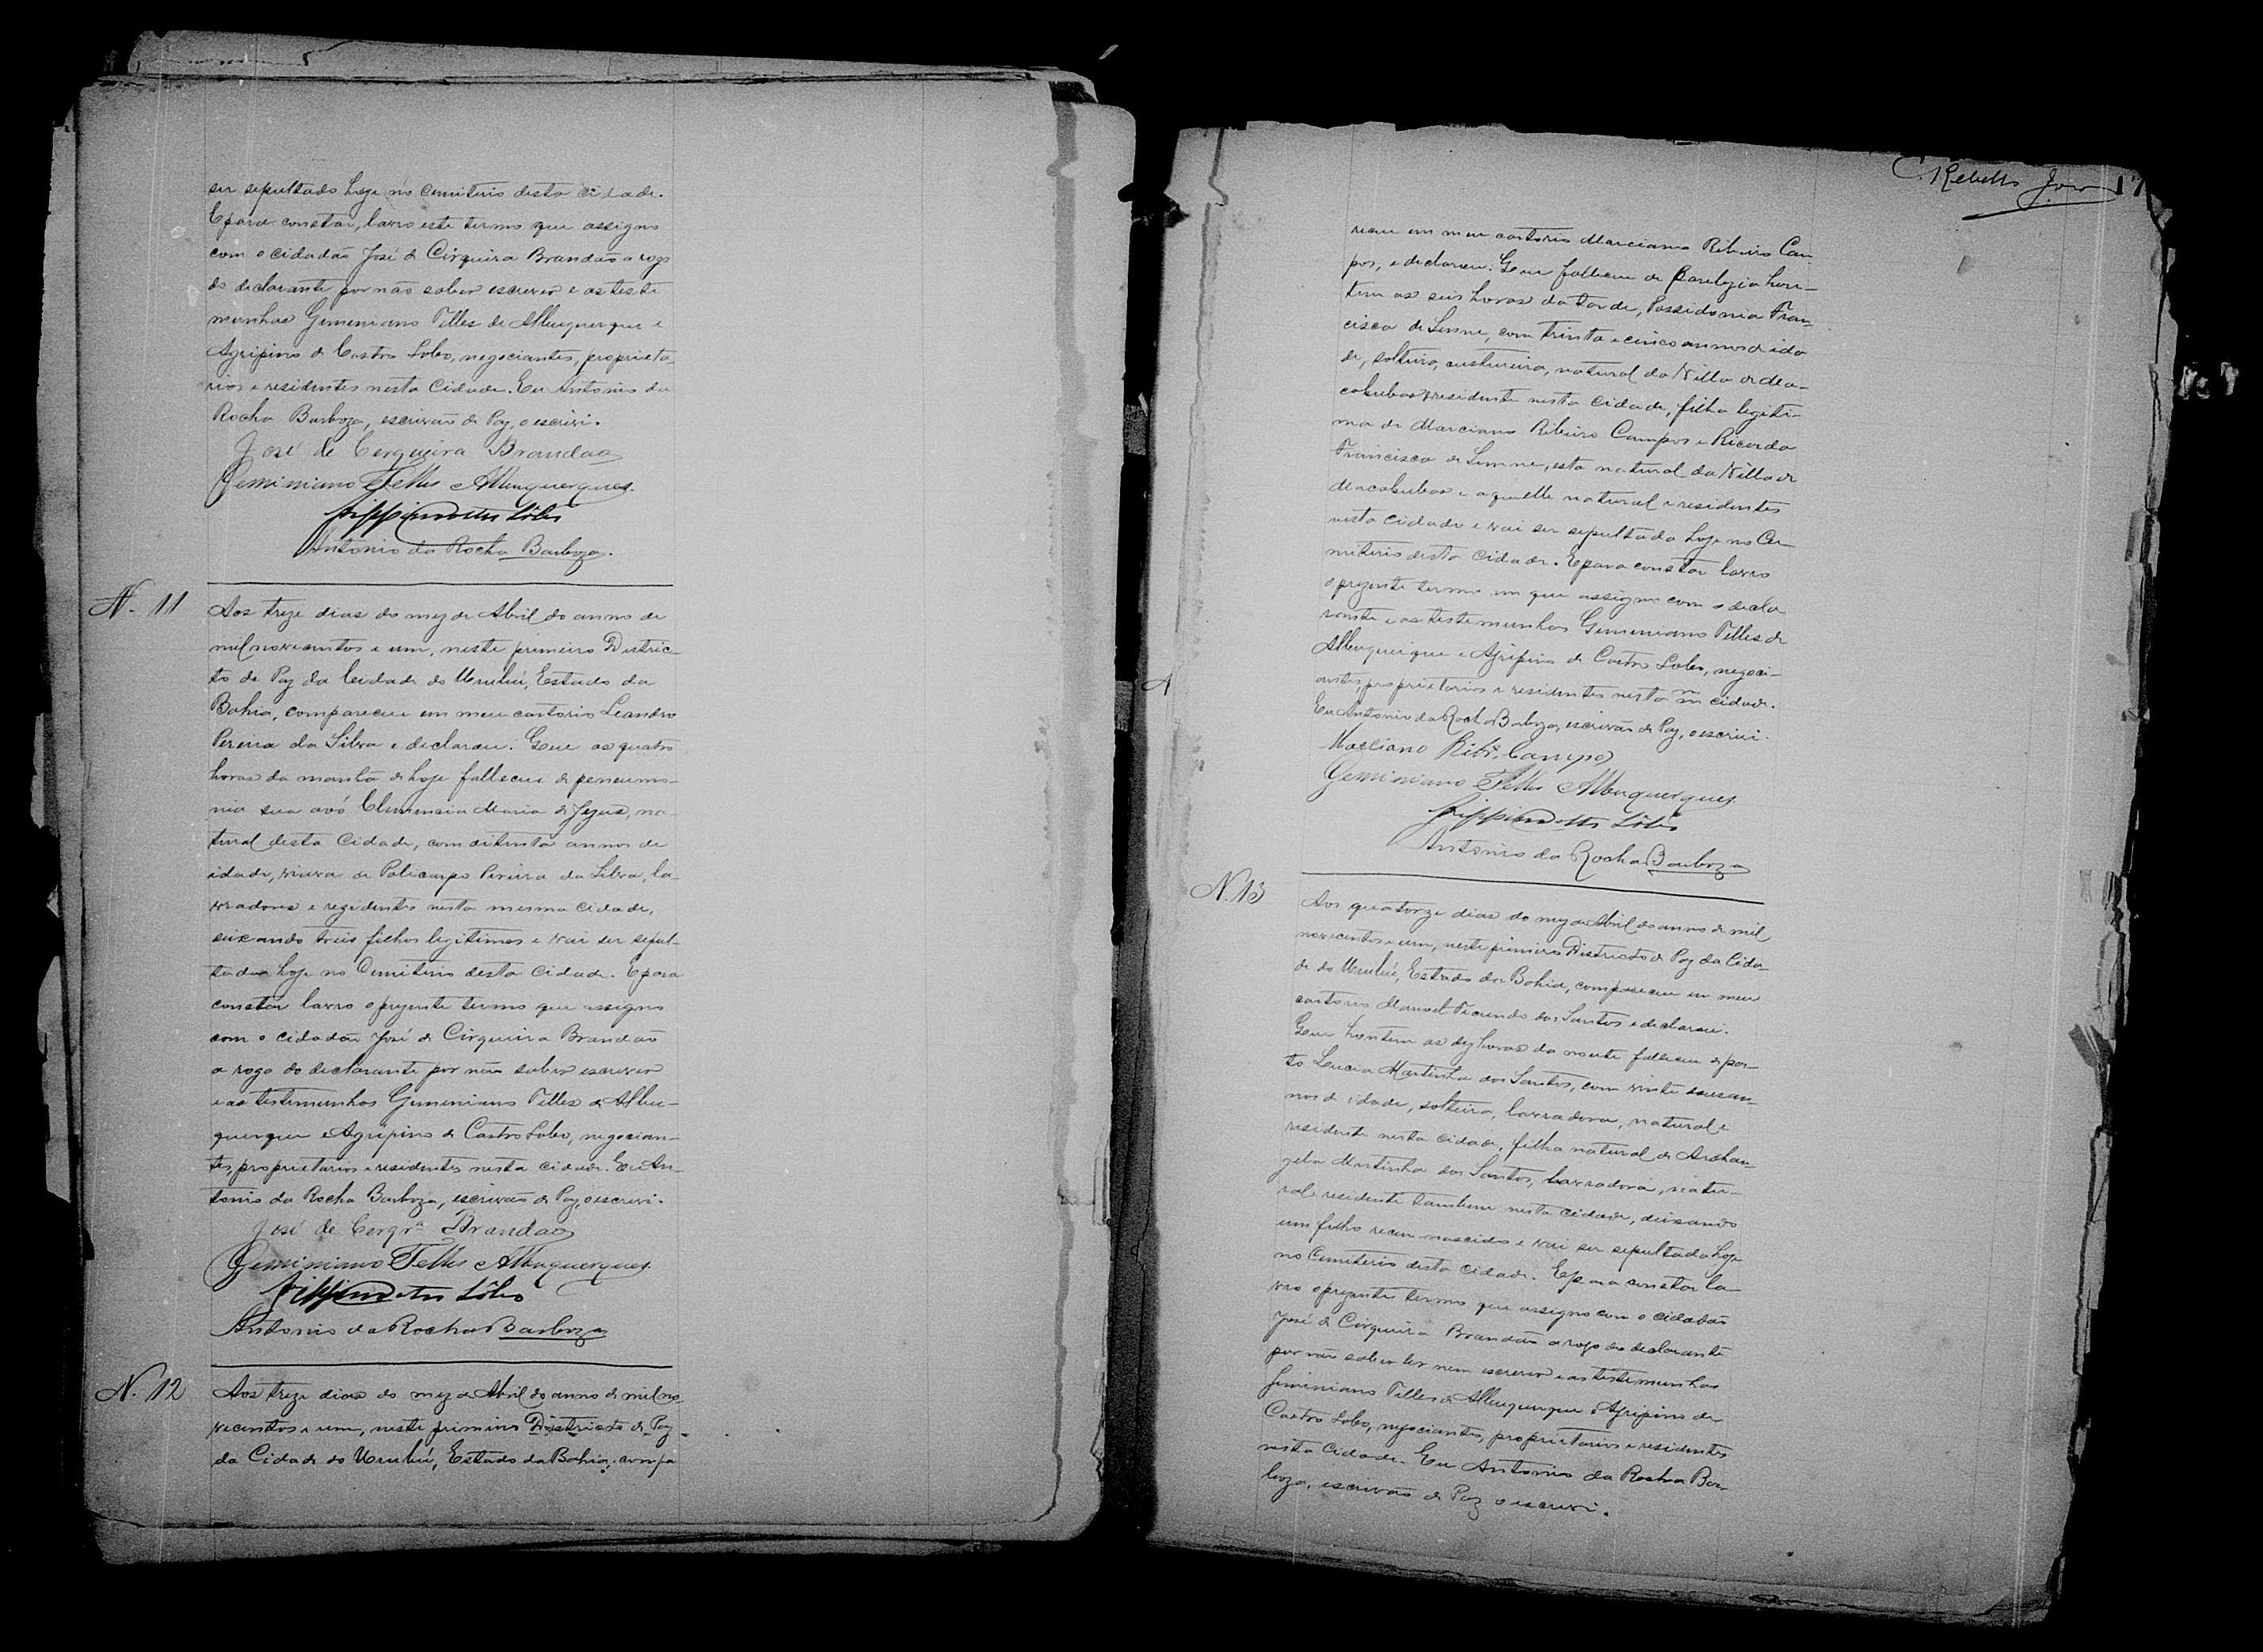 ser sepultado hoje no Cemiterio desta cidade.
E para constar, lavro este termo que assigno
com o cidadão José de Cirqueira Brandão a rogo
do declarante por não saber escrever e as teste
munhas Gemeniano Telles de Albuquerque e
Agripino de Castro Lobo, negociantes, proprieta-
rios e residentes nesta Cidade. Eu Antonio da
Rocha Barboza, escrivão de Paz, o escrivi.
José de Cerqueira Brandão
Geminiano Telles Albuquerques
Lôbo
Antonio da Rocha Barboza.
N. 11
Aos treze dias do mez de Abril do anno de
mil novecentos e um, neste primeiro Distric-
to de Paz da Cidade do Urubú, Estado da
Bahia, compareceu em meu cartorio Leandro
Pereira da Silva e declarou: Que as quatro
horas da manhã de hoje falleceu de peneumo-
nia sua avó Clemencia Maria de Jezus, na-
tural desta Cidade, com oitenta annos de
idade, viuva de Policarpo Pereira da Silva, la-
vradores e rezidentes nesta mesma cidade,
deixando treis filhos legitimos e vai ser sepul-
tada hoje no Cemiterio desta Cidade. E para
constar lavro o prezente termo que assigno
com o cidadão José de Cirqueira Brandão
a rogo do declarante por não saber escrever
e as testemunhas Gemeniano Telles de Albu-
querque e Agripino de Castro Lobo, negocian-
tes, proprietarios e residentes nesta cidade. Eu An-
tonio da Rocha Barboza, escrivão de Paz, o escrevi.
José de Cerqrª Brandão
Geminiano Telles Albuquerques
Lôbo
Antonio da Rocha Barboza
N. 12
Aos treze dias do mez de Abril do anno de mil no
vecentos e um, neste primeiro Districto de Paz
da Cidade do Urubú, Estado da Bahia, compa
17
receu em meu cartorio Marciano Ribeiro Cam-
pos, e declarou: Que falleceu de Paralezia hon-
tem as seis horas da tarde, Possidonia Fran-
cisca de Lemne, com trinta e cinco annos de ida
de, solteira, custureira, natural da Villa de Ma-
cahubas e residente nesta Cidade, filha legiti-
ma de Marciano Ribeiro Campos e Ricarda
Francisca de Lemne, esta natural da Villa de
Macahubas e aquelle natural e residentes
nesta Cidade e vai ser sepultada hoje no Ce-
miterio desta Cidade. E para constar lavro
o prezente termo em que assigno com o decla
rante e as testemunhas Gemeniano Telles de
Albuquerque e Agripino de Castro Lobo, negoci-
antes, proprietarios e residentes nesta cidade.
Eu Antonio da Rocha Barboza, escrivão de Paz, o escrivi.
Marciano Ribrº Campos
Geminiano Telles Albuquerques
Lôbo
Antonio da Rocha Barboza
N. 13
Aos quatorze dias do mez de Abril do anno de mil
novecentos e um, neste primeiro Districto de Paz da Cida-
de do Urubú, Estado da Bahia, compareceu em meu
cartorio Manoel Fecundo dos Santos e declarou:
Que hontem as dez horas da noute falleceu de par-
to Lucia Martinha dos Santos, com vinte annos de idade, solteira, lavradora, natural e
residente nesta cidade, filha natural de Archan-
gela Martinha dos Santos, lavradora, natu-
ral e residente tambem nesta cidade, deixando
um filho recem nascido e vai ser sepultada hoje
no Cemiterio desta cidade. E para constar la-
vro o prezente termo que assigno com o cidadão
José de Cirqueira Brandão a rogo do declarante
por não saber ler nem escrever e as testemunhas
Geminiano Telles de Albuquerque e Agripino de
Castro Lobo, negociantes, proprietarios e residentes
nesta Cidade. Eu Antonio da Rocha Bar-
boza, escrivão de Paz o escrevi.